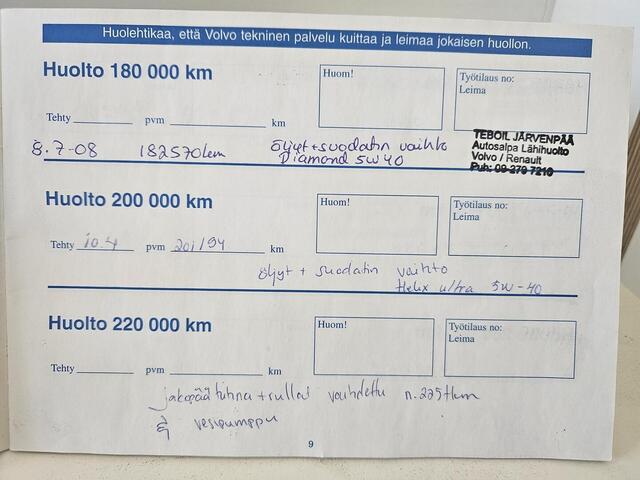 Huolehtikaa, että Volvo tekninen palvelu kuittaa ja leimaa jokaisen huollon.
Huolto 180 000 km
Huom!
Työtilaus no:
Leima
Tehty pvm km
8.7-08 182570km öljyt+suodatin vaihto
Diamond 5W40
TEBOIL JÄRVENPÄÄ
Autosalpa Lähihuolto
Volvo / Renault
Puh: 09-279 7210
Huolto 200 000 km
Huom!
Työtilaus no:
Leima
Tehty 10.4 pvm 201194 km
öljyt + suodatin vaihto
Helix ultra 5W-40
Huolto 220 000 km
Huom!
Työtilaus no:
Leima
Tehty pvm km
jakopäähihna + rullat vaihdettu n.225tkm
& vesipumppu
9